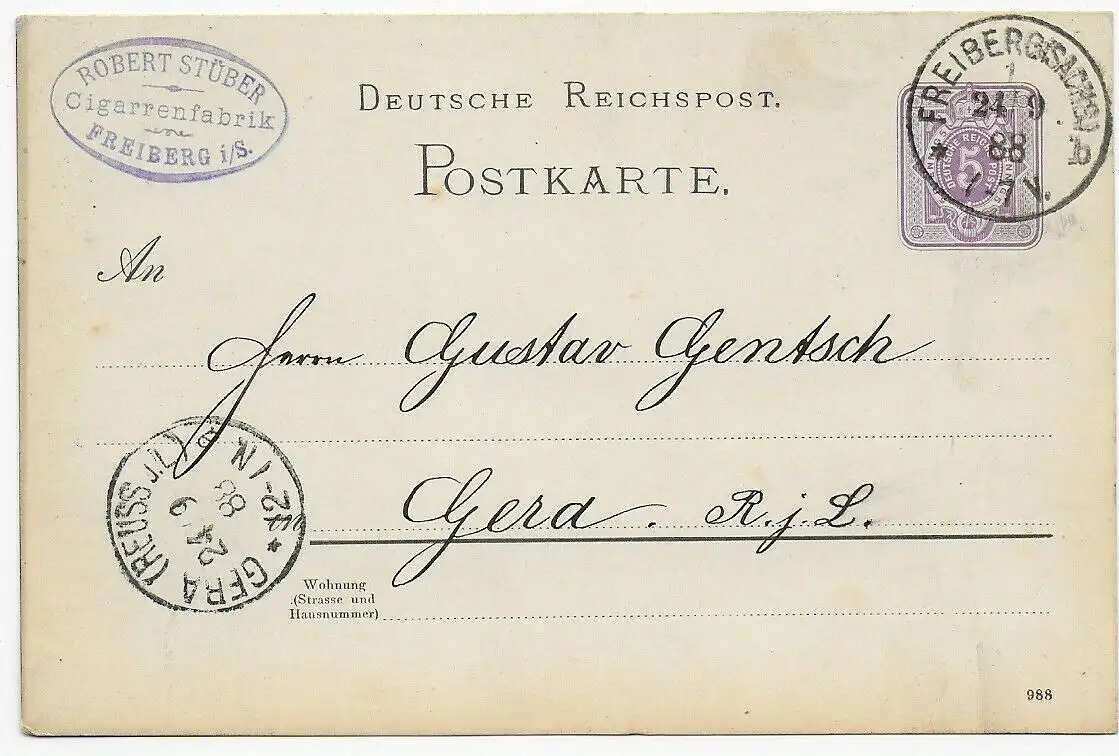 ROBERT STÜBER
Cigarrenfabrik
FREIBERG i/S.
DEUTSCHE REICHSPOST.
POSTKARTE.
FREIBERG (SACHSEN)
1
24 9
88
* 1b
7 V.
DEUTSCHE REICHSPOST
5
An
Herrn Gustav Gentsch
Gera. R. j. L.
GERA (REUSS J.L.)
24 9
88
12-1N
*
Wohnung
(Strasse und
Hausnummer)
988